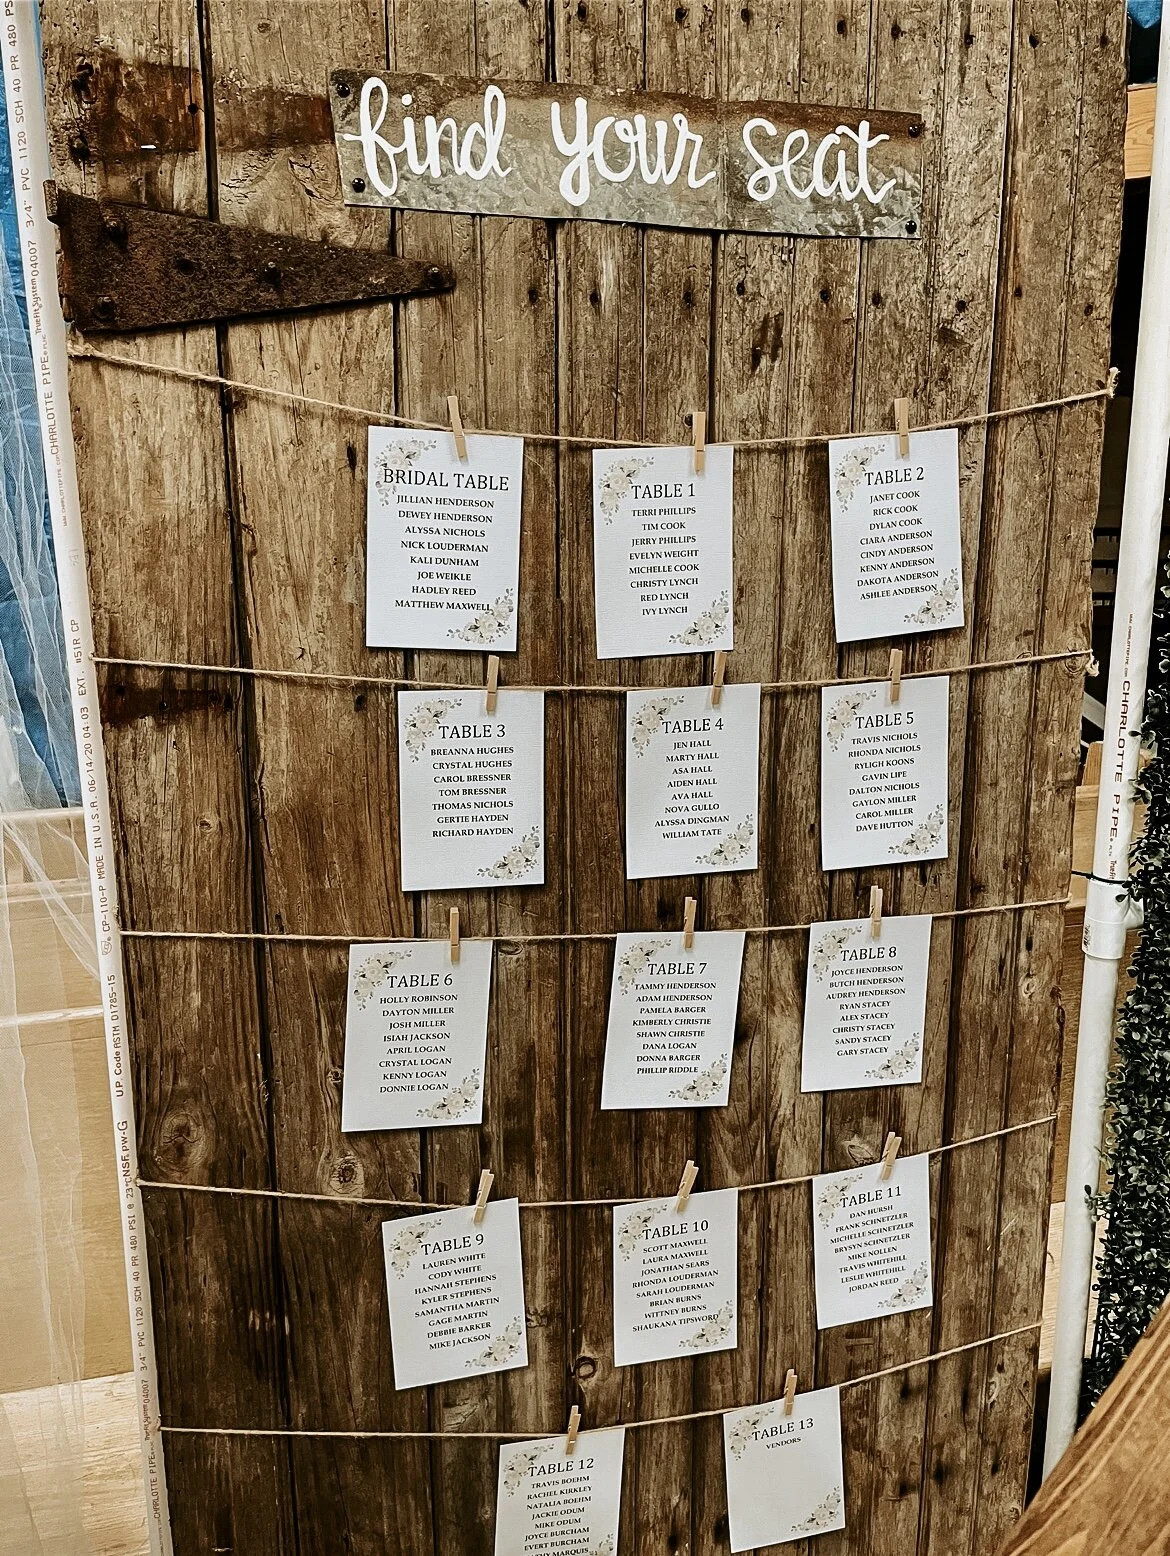 find your seat
BRIDAL TABLE
JILLIAN HENDERSON
DEWEY HENDERSON
ALYSSA NICHOLS
NICK LOUDERMAN
KALI DUNHAM
JOE WEIKLE
HADLEY REED
MATTHEW MAXWELL
TABLE 1
TERRI PHILLIPS
TIM COOK
JERRY PHILLIPS
EVELYN WEIGHT
MICHELLE COOK
CHRISTY LYNCH
RED LYNCH
IVY LYNCH
TABLE 2
JANET COOK
RICK COOK
DYLAN COOK
CIARA ANDERSON
CINDY ANDERSON
KENNY ANDERSON
DAKOTA ANDERSON
ASHLEE ANDERSON
TABLE 3
BREANNA HUGHES
CRYSTAL HUGHES
CAROL BRESSNER
TOM BRESSNER
THOMAS NICHOLS
GERTIE HAYDEN
RICHARD HAYDEN
TABLE 4
JEN HALL
MARTY HALL
ASA HALL
AIDEN HALL
AVA HALL
NOVA GULLO
ALYSSA DINGMAN
WILLIAM TATE
TABLE 5
TRAVIS NICHOLS
RHONDA NICHOLS
RYLIGH KOONS
GAVIN LIPE
DALTON NICHOLS
GAYLON MILLER
CAROL MILLER
DAVE HUTTON
TABLE 6
HOLLY ROBINSON
DAYTON MILLER
JOSH MILLER
ISIAH JACKSON
APRIL LOGAN
CRYSTAL LOGAN
KENNY LOGAN
DONNIE LOGAN
TABLE 7
TAMMY HENDERSON
ADAM HENDERSON
PAMELA BARGER
KIMBERLY CHRISTIE
SHAWN CHRISTIE
DANA LOGAN
DONNA BARGER
PHILLIP RIDDLE
TABLE 8
JOYCE HENDERSON
BUTCH HENDERSON
AUDREY HENDERSON
RYAN STACEY
ALEX STACEY
CHRISTY STACEY
SANDY STACEY
GARY STACEY
TABLE 9
LAUREN WHITE
CODY WHITE
HANNAH STEPHENS
KYLER STEPHENS
SAMANTHA MARTIN
GAGE MARTIN
DEBBIE BARKER
MIKE JACKSON
TABLE 10
SCOTT MAXWELL
LAURA MAXWELL
JONATHAN SEARS
RHONDA LOUDERMAN
SARAH LOUDERMAN
BRIAN BURNS
WITTNEY BURNS
SHAUKANA TIPSWORD
TABLE 11
DAN HURSH
FRANK SCHNETZLER
MICHELLE SCHNETZLER
BRYSYN SCHNETZLER
MIKE NOLLEN
TRAVIS WHITEHILL
LESLIE WHITEHILL
JORDAN REED
TABLE 12
TRAVIS BOEHM
RACHEL KIRKLEY
NATALIA BOEHM
JACKIE ODUM
MIKE ODUM
JOYCE BURCHAM
EVERT BURCHAM
MARQUIS
TABLE 13
VENDORS
3/4" PVC 1120 SCH 40 PR 480 PS
CHARLOTTE PIPE TrueFit System 04007
UP Code ASTM D1785-15 CP-110-P MADE IN U.S.A. 06/14/20 04:03 EXT #51R CP
CHARLOTTE PIPE 04007 3/4" PVC 1120 SCH 40 PR 480 PSI @ 23°C NSF PW-G
CHARLOTTE PIPE